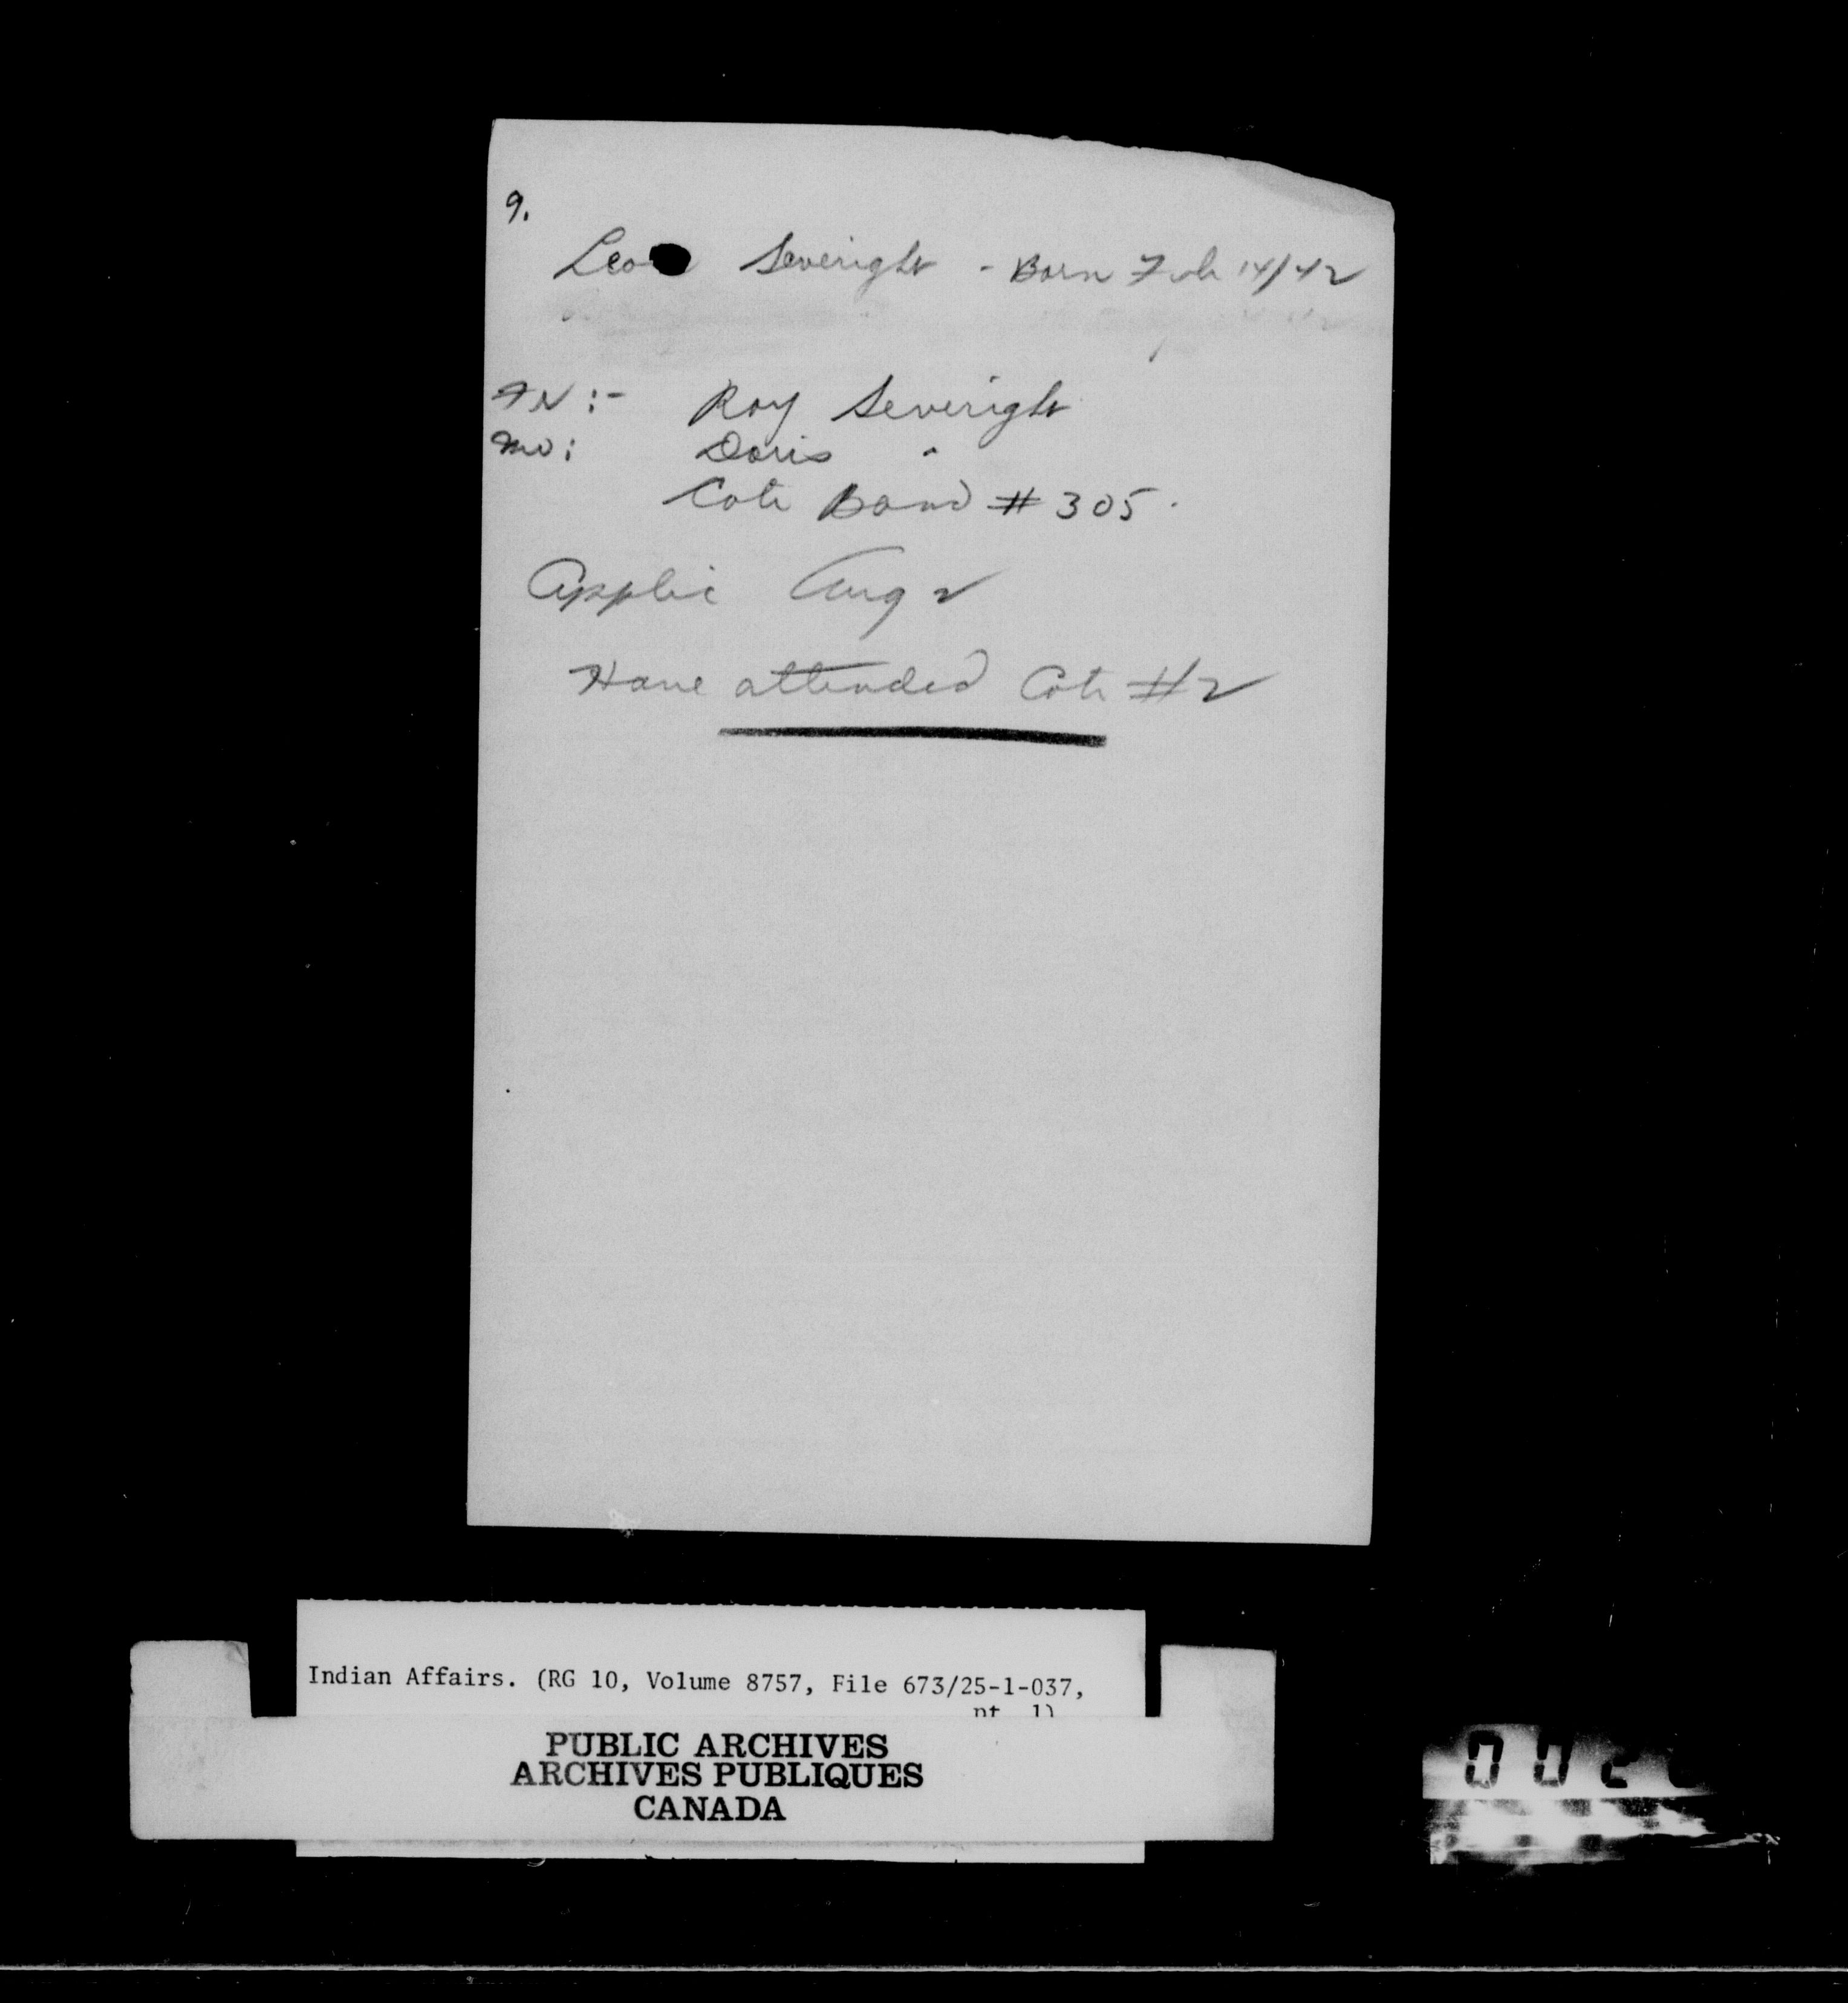 9.
Leo Severight - Born Feb 14/42
FN :- Roy Severight
Mo: Doris "
Cote Band # 305.
Applic Aug 2
Have attended Cote #2
Indian Affairs. (RG 10, Volume 8757, File 673/25-1-037,
pt. 1)
PUBLIC ARCHIVES
ARCHIVES PUBLIQUES
CANADA
002